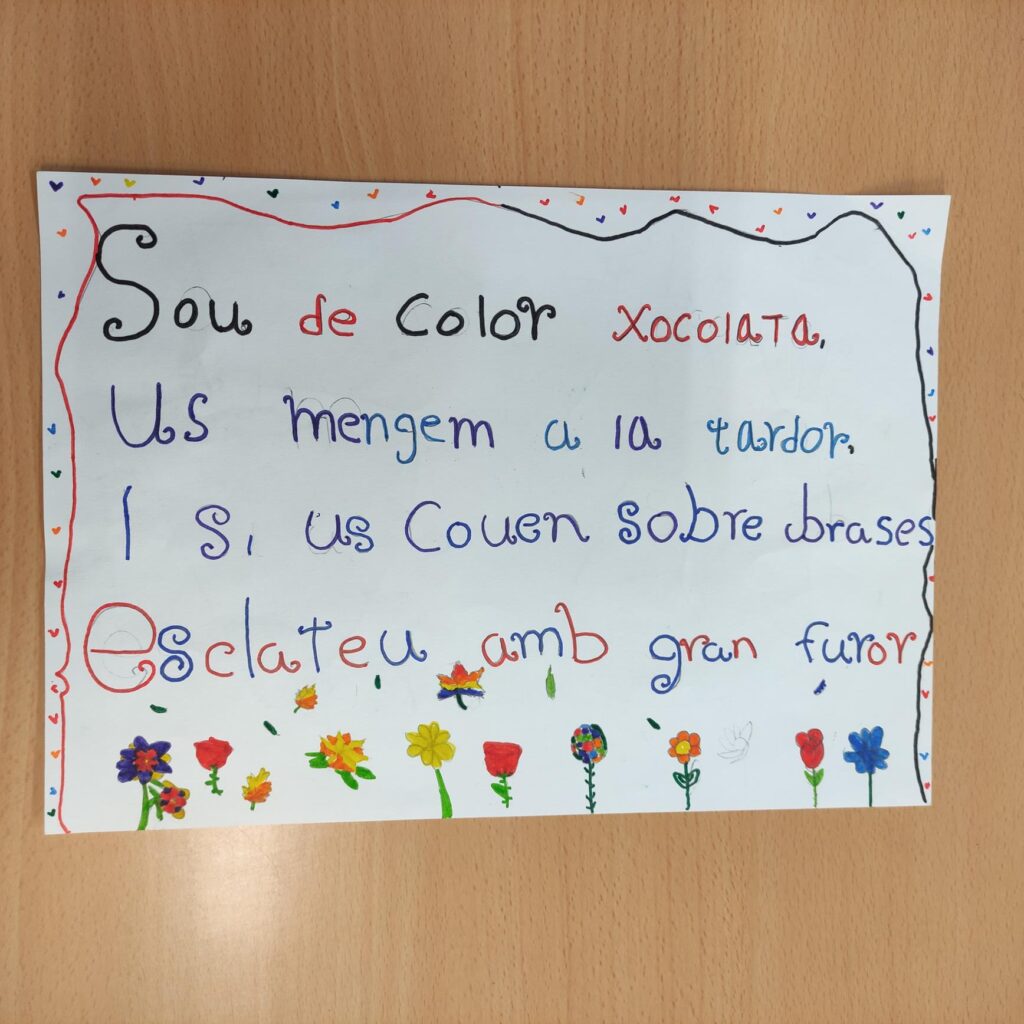 Sou de color xocolata,
Us mengem a la tardor,
I si us couen sobre brases
esclateu amb gran furor